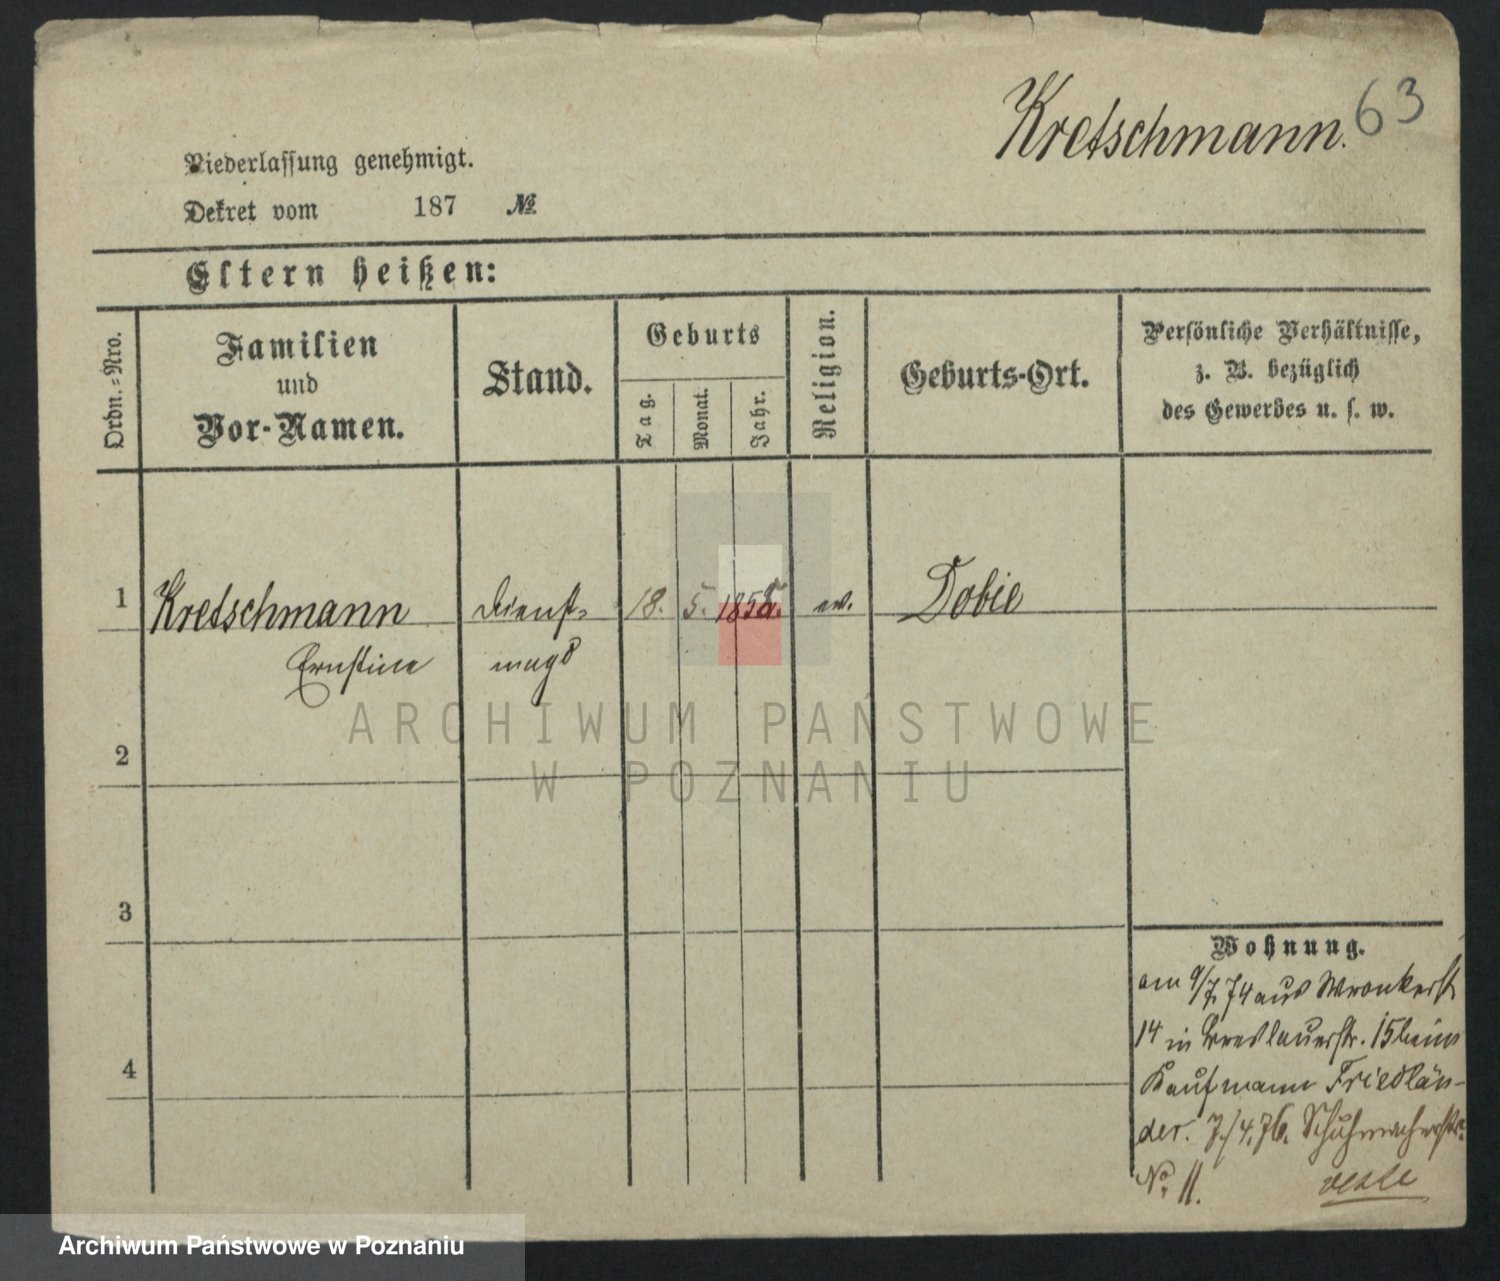 Kretschmann. 63
Niederlassung genehmigt.
Dekret vom 187 №
Eltern heißen:
Ordn.-Nro.
Familien
und
Vor-Namen.
Stand.
Geburts
Tag.
Monat.
Jahr.
Religion.
Geburts-Ort.
Persönliche Verhältnisse,
z. B. bezüglich
des Gewerbes u. s. w.
1 Kretschmann Dienst- 18. 5. 1858. ev. Dobie
Ernstine magd
2
3
4
Wohnung.
am 9/7 74 aus Wronkerst
14 in Breslauerstr. 15 beim
Kaufmann Friedlän-
der. 7/4.76. Schuhmacherstr.
No. 11.
ARCHIWUM PAŃSTWOWE
W POZNANIU
Archiwum Państwowe w Poznaniu